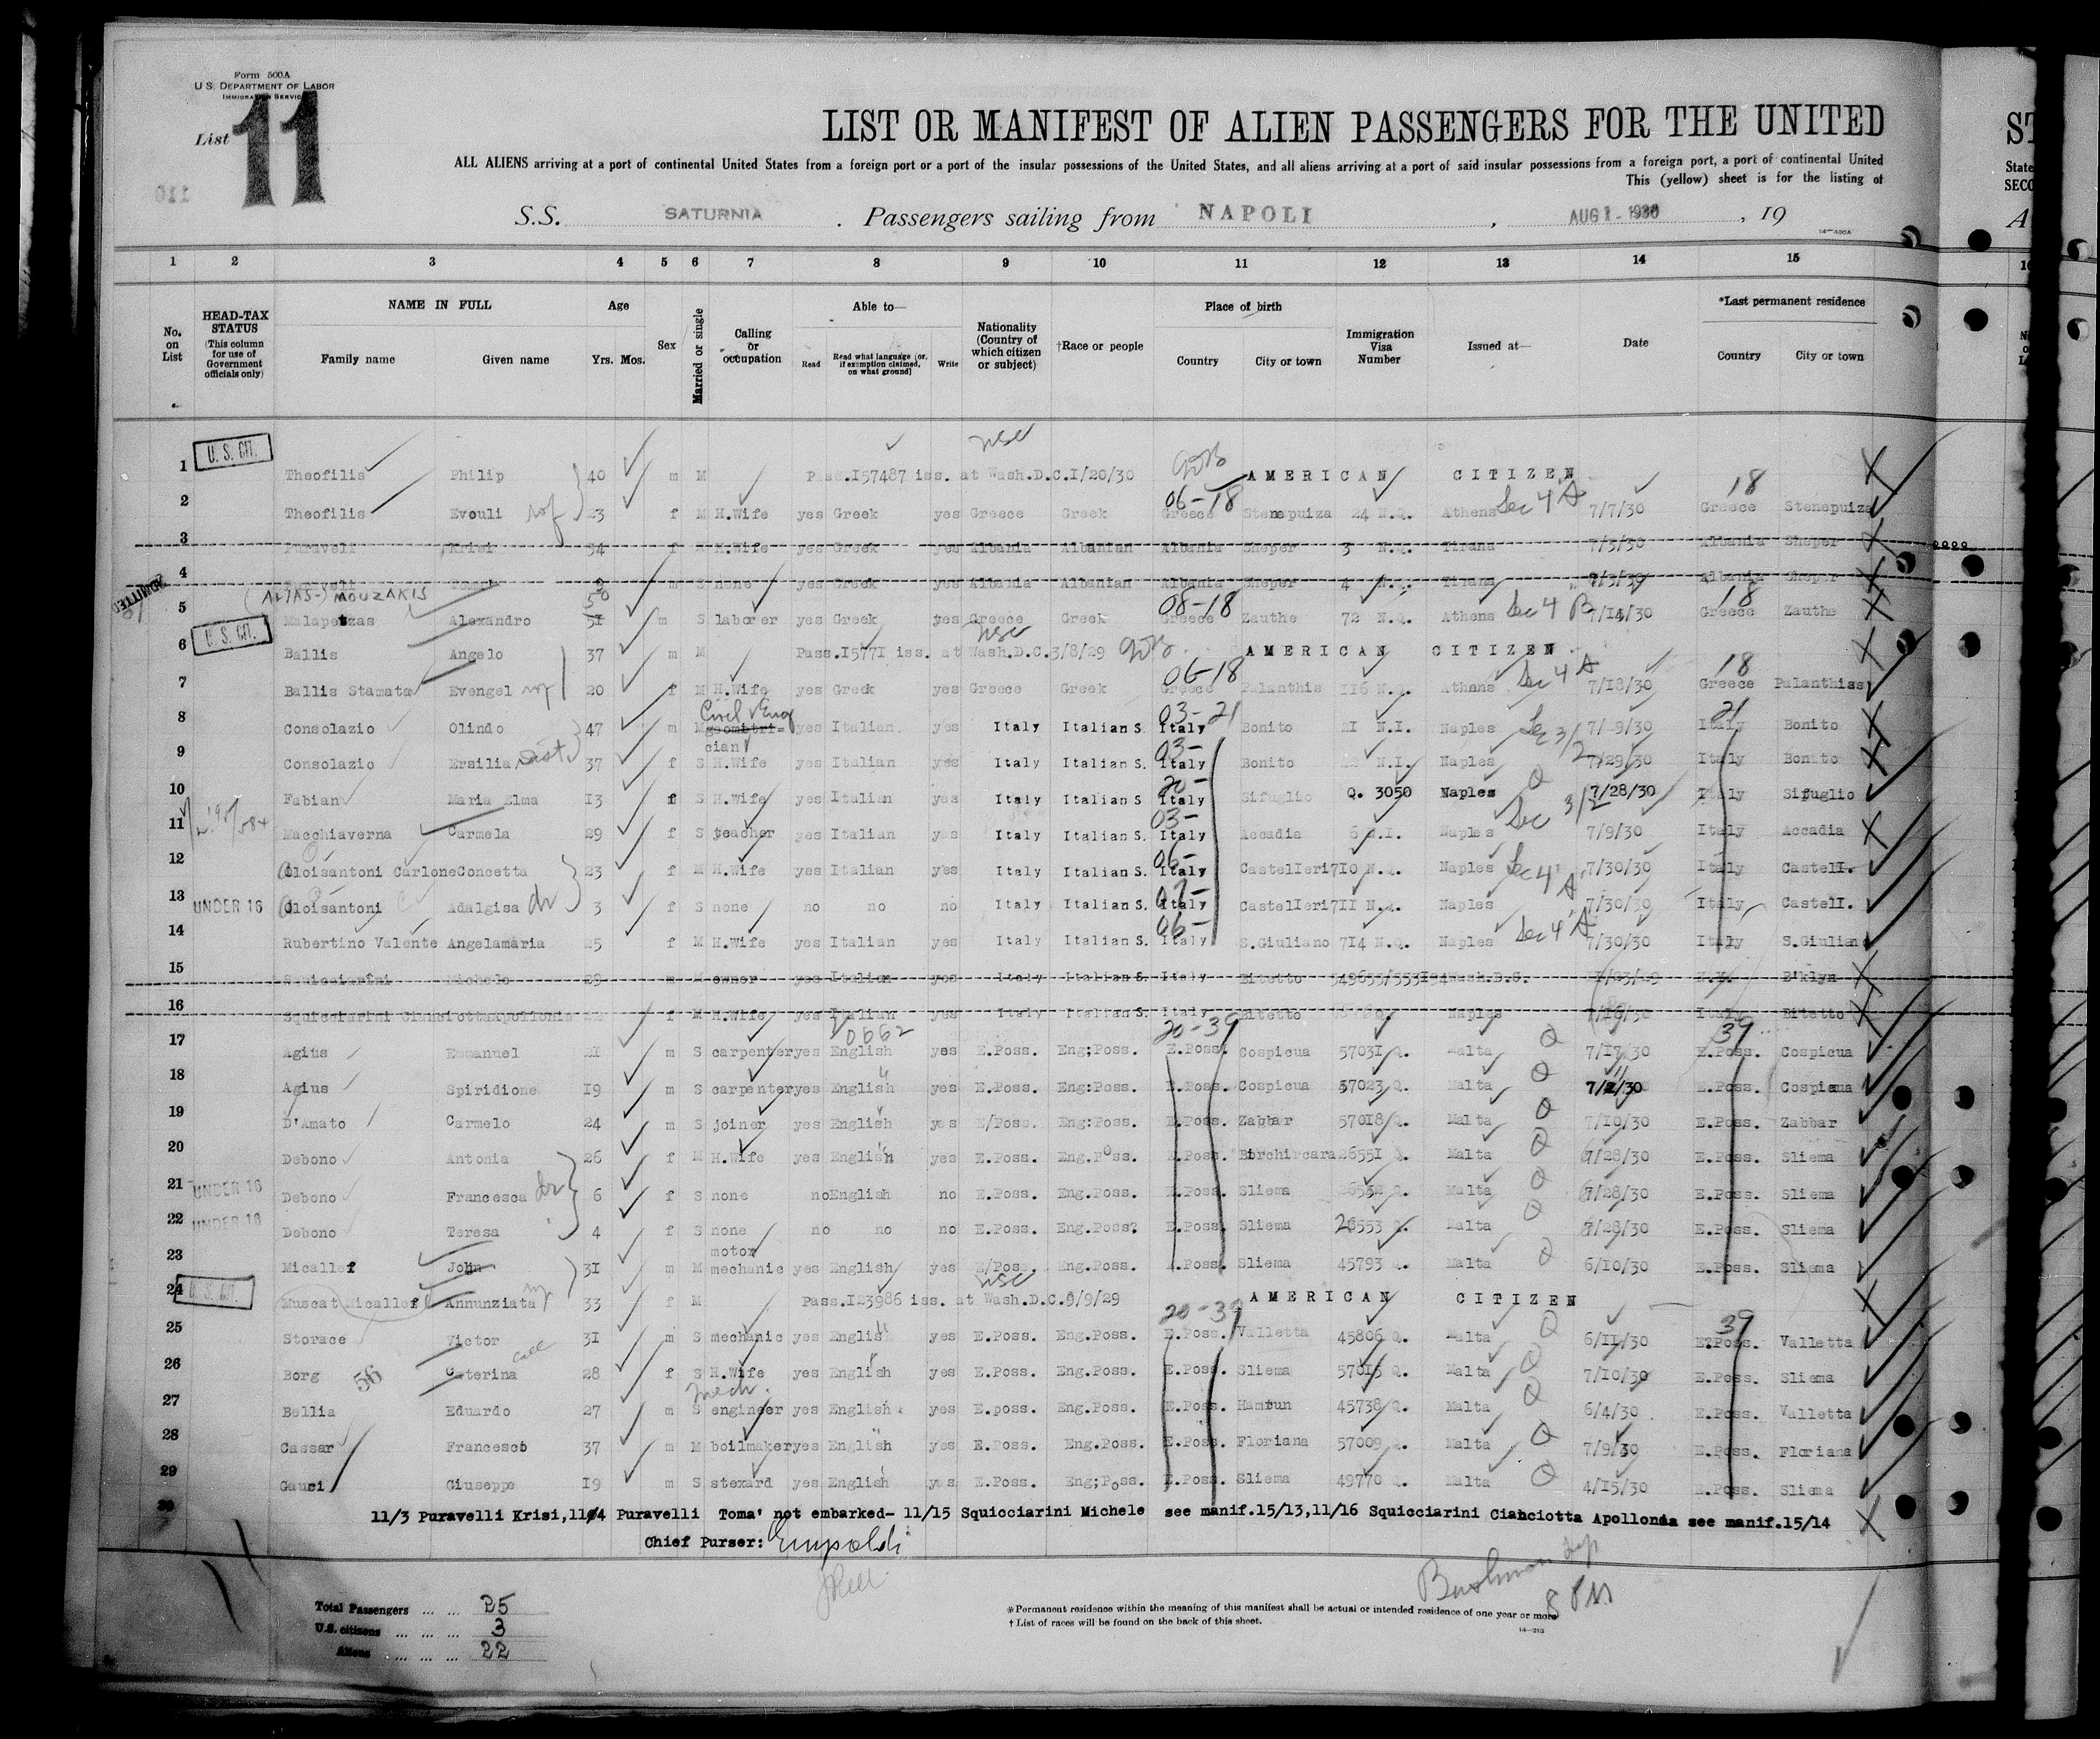 Form 500A
U. S. DEPARTMENT OF LABOR
IMMIGRATION SERVICE
List 11
110
LIST OR MANIFEST OF ALIEN PASSENGERS FOR THE UNITED
ALL ALIENS arriving at a port of continental United States from a foreign port or a port of the insular possessions of the United States, and all aliens arriving at a port of said insular possessions from a foreign port, a port of continental United
This (yellow) sheet is for the listing of
S.S. SATURNIA . Passengers sailing from NAPOLI , AUG 1 - 1930 , 19
14—480A
1 2 3 4 5 6 7 8 9 10 11 12 13 14 15
No. on List
HEAD-TAX STATUS (This column for use of Government officials only)
NAME IN FULL
Family name Given name
Age
Yrs. Mos.
Sex
Married or single
Calling or occupation
Able to—
Read Read what language [or, if exemption claimed, on what ground] Write
Nationality (Country of which citizen or subject)
†Race or people
Place of birth
Country City or town
Immigration Visa Number
Issued at—
Date
*Last permanent residence
Country City or town
1 U. S. CIT. Theofilis Philip 40 m M Pass.I57487 iss. at Wash.D.C.I/20/30 AMERICAN CITIZEN
2 Theofilis Evouli 23 f M H.Wife yes Greek yes Greece Greek 06-18 Greece Stenepuiza 24 N.Q. Athens Sec 4 A 7/7/30 18 Greece Stenepuiza
3 Puravell Krisi 34 f M H.Wife yes Greek yes Albania Albanian Albania Sheper 3 N.Q. Tirana 7/3/30 Albania Sheper
4 m S none yes Greek yes Albania Albanian Albania Sheper 4 N.Q. Tirana 7/3/30 Albania Sheper
(ALIAS-) MOUZAKIS
ADMITTED
5 Malapetzas Alexandro 50 51 m S laborer yes Greek yes Greece Greek 08-18 Greece Zauthe 72 N.Q. Athens Sec 4 B 7/14/30 18 Greece Zauthe
6 U. S. CIT. Ballis Angelo 37 m M Pass.I577I iss. at Wash.D.C.3/8/29 AMERICAN CITIZEN
7 Ballis Stamata Evengel 20 f M H.Wife yes Greek yes Greece Greek 06-18 Greece Palanthis 116 N.Q. Athens Sec 4 A 7/18/30 18 Greece Palanthiss
8 Consolazio Olindo 47 m M Civil Eng geometri-cian yes Italian yes Italy Italian S. 03-21 Italy Bonito 21 N.I. Naples Sec 3/2 7/29/30 21 Italy Bonito
9 Consolazio Ersilia sist. 37 f S H.Wife yes Italian yes Italy Italian S. 03- Italy Bonito N.I. Naples 7/29/30 Italy Bonito
10 Fabian Maria Elma I3 f S H.Wife yes Italian yes Italy Italian S 20- Italy Sifuglio Q. 3050 Naples Q 7/28/30 Italy Sifuglio
11 Macchiaverna Carmela 29 f S teacher yes Italian yes Italy Italian S. 03- Italy Accadia 6 N.I. Naples Sec 3/2 7/9/30 Italy Accadia
12 Cloisantoni Carlone Concetta 23 f M H.Wife yes Italian yes Italy Italian S. 06- Italy CastelIeri 710 N.Q. Naples Sec 4 A 7/30/30 Italy CastelI.
13 UNDER 16 Cloisantoni Adalgisa 3 f S none no no no Italy Italian S. 07- Italy CastelIeri 7II N.Q. Naples 7/30/30 Italy CastelI.
14 Rubertino Valente Angelamaria 25 f M H.Wife yes Italian yes Italy Italian S. 06- Italy S.Giuliano 7I4 N.Q. Naples Sec 4 A 7/30/30 Italy S.Giuliano
15 Squicciarini Michele 29 m M owner yes Italian yes Italy Italian S. Italy Bitetto Wash.D.C. N.Y. B'klyn
16 Squicciarini f M H.Wife yes Italian yes Italy Italian S. Italy Bitetto Naples Italy Bitetto
17 Agius Emmanuel 21 m S carpenter yes English yes E.Poss. Eng;Poss. 20-39 E.Poss. Cospicua 5703I Q. Malta Q 7/17/30 39 E.Poss. Cospicua
18 Agius Spiridione I9 m S carpenter yes English yes E.Poss. Eng:Poss. E.Poss. Cospicua 57023 Q. Malta Q 7/11/30 E.Poss. Cospicua
19 D'Amato Carmelo 24 m S joiner yes English yes E/Poss. Eng:Poss. E.Poss. Zabbar 570I8 Q. Malta Q 7/10/30 E.Poss. Zabbar
20 Debono Antonia 26 f M H.Wife yes English yes E.Poss. Eng.Poss. E.Poss. Birchircara 2655I Q. Malta Q 7/28/30 E.Poss. Sliema
21 UNDER 16 Debono Francesca 6 f S none no English no E.Poss. Eng.Poss. E.Poss. Sliema 26552 Q. Malta Q 7/28/30 E.Poss. Sliema
22 UNDER 16 Debono Teresa 4 f S none no no no E.Poss. Eng.Poss. E.Poss. Sliema 26553 Q. Malta Q 7/28/30 E.Poss. Sliema
23 Micallef John 3I m M motor mechanic yes English yes E/Poss. Eng.Poss. E.Poss. Sliema 45793 Q. Malta Q 6/10/30 E.Poss. Sliema
24 U. S. CIT. Muscat Micallef Annunziata 33 f M Pass.I23986 iss. at Wash.D.C.9/9/29 AMERICAN CITIZEN
25 Storace Victor 3I m S mechanic yes English yes E.Poss. Eng.Poss. 20-39 E.Poss. Valletta 45806 Q. Malta Q 6/11/30 39 E.Poss. Valletta
26 Borg 56 Caterina 28 f S H.Wife yes English yes E.Poss. Eng.Poss. E.Poss. Sliema 57015 Q. Malta Q 7/10/30 E.Poss. Sliema
27 Bellia Eduardo 27 m S mech. engineer yes English yes E.poss. Eng.Poss. E.Poss. Hamrun 45738 Q. Malta Q 6/4/30 E.Poss. Valletta
28 Cassar Francesco 37 m M boilmaker yes English yes E.Poss. Eng.Poss. E.Poss. Floriana 57009 Q. Malta Q 7/9/30 E.Poss. Floriana
29 Gauci Giuseppe I9 m S stexard yes English yes E.Poss. Eng;Poss. E.Poss. Sliema 49770 Q. Malta Q 4/15/30 E.Poss. Sliema
30 11/3 Puravelli Krisi,11/4 Puravelli Toma' not embarked- 11/15 Squicciarini Michele see manif.15/13,11/16 Squicciarini Cianciotta Apollonia see manif.15/14
Chief Purser:
Total Passengers ... ... 25
U.S. citizens ... ... ... 3
Aliens ... ... ... 22
*Permanent residence within the meaning of this manifest shall be actual or intended residence of one year or more
† List of races will be found on the back of this sheet.
14—213